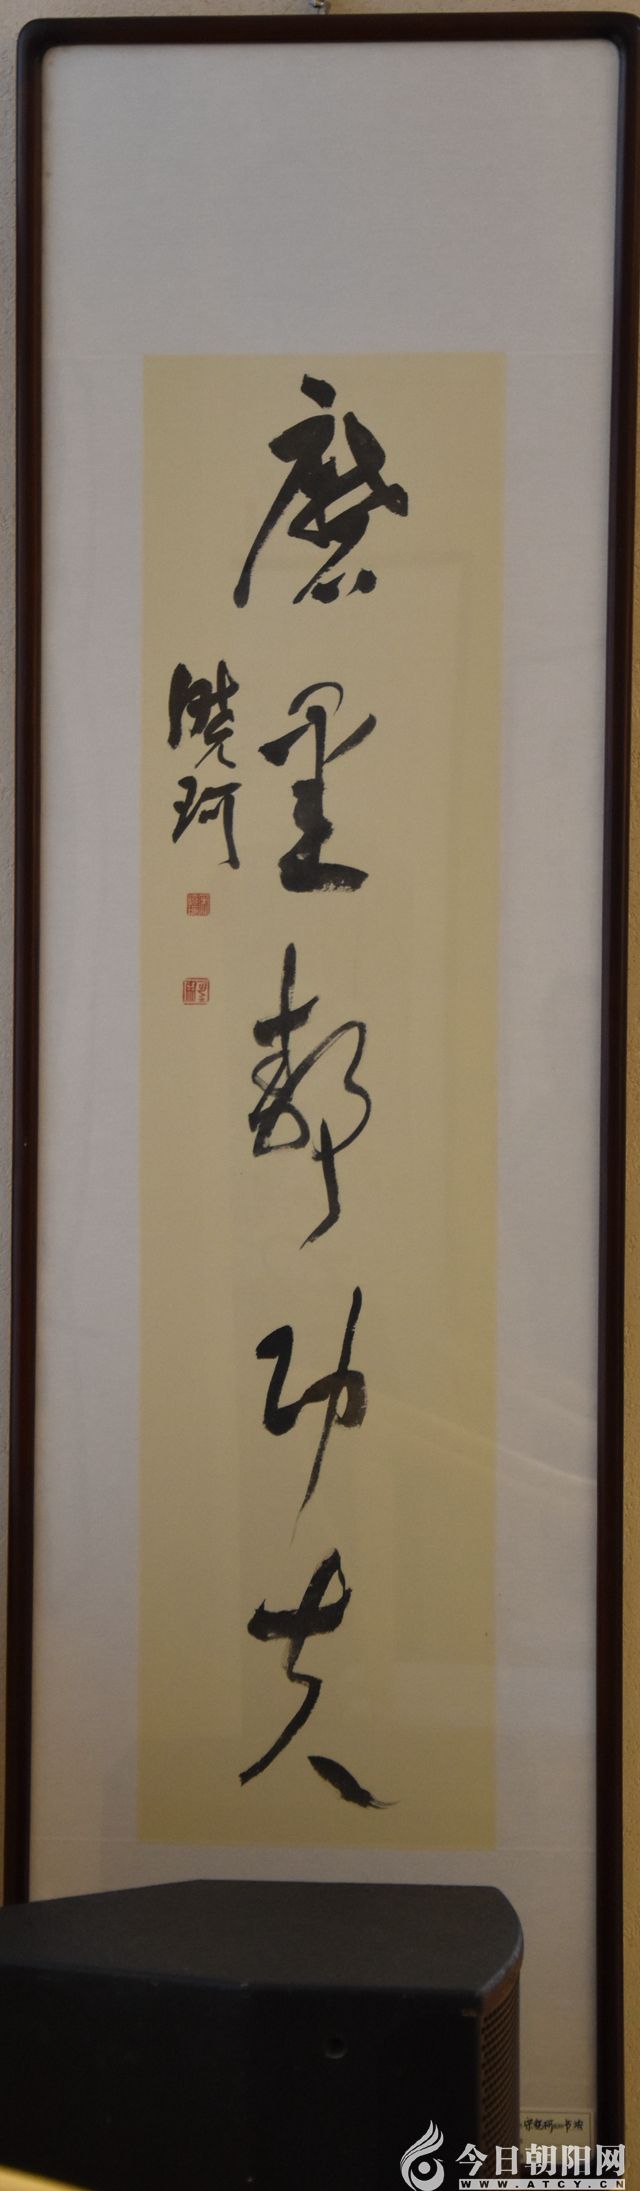 磨墨都功夫
晓珂
宋晓珂 书法
今日朝阳网
WWW.ATCY.CN